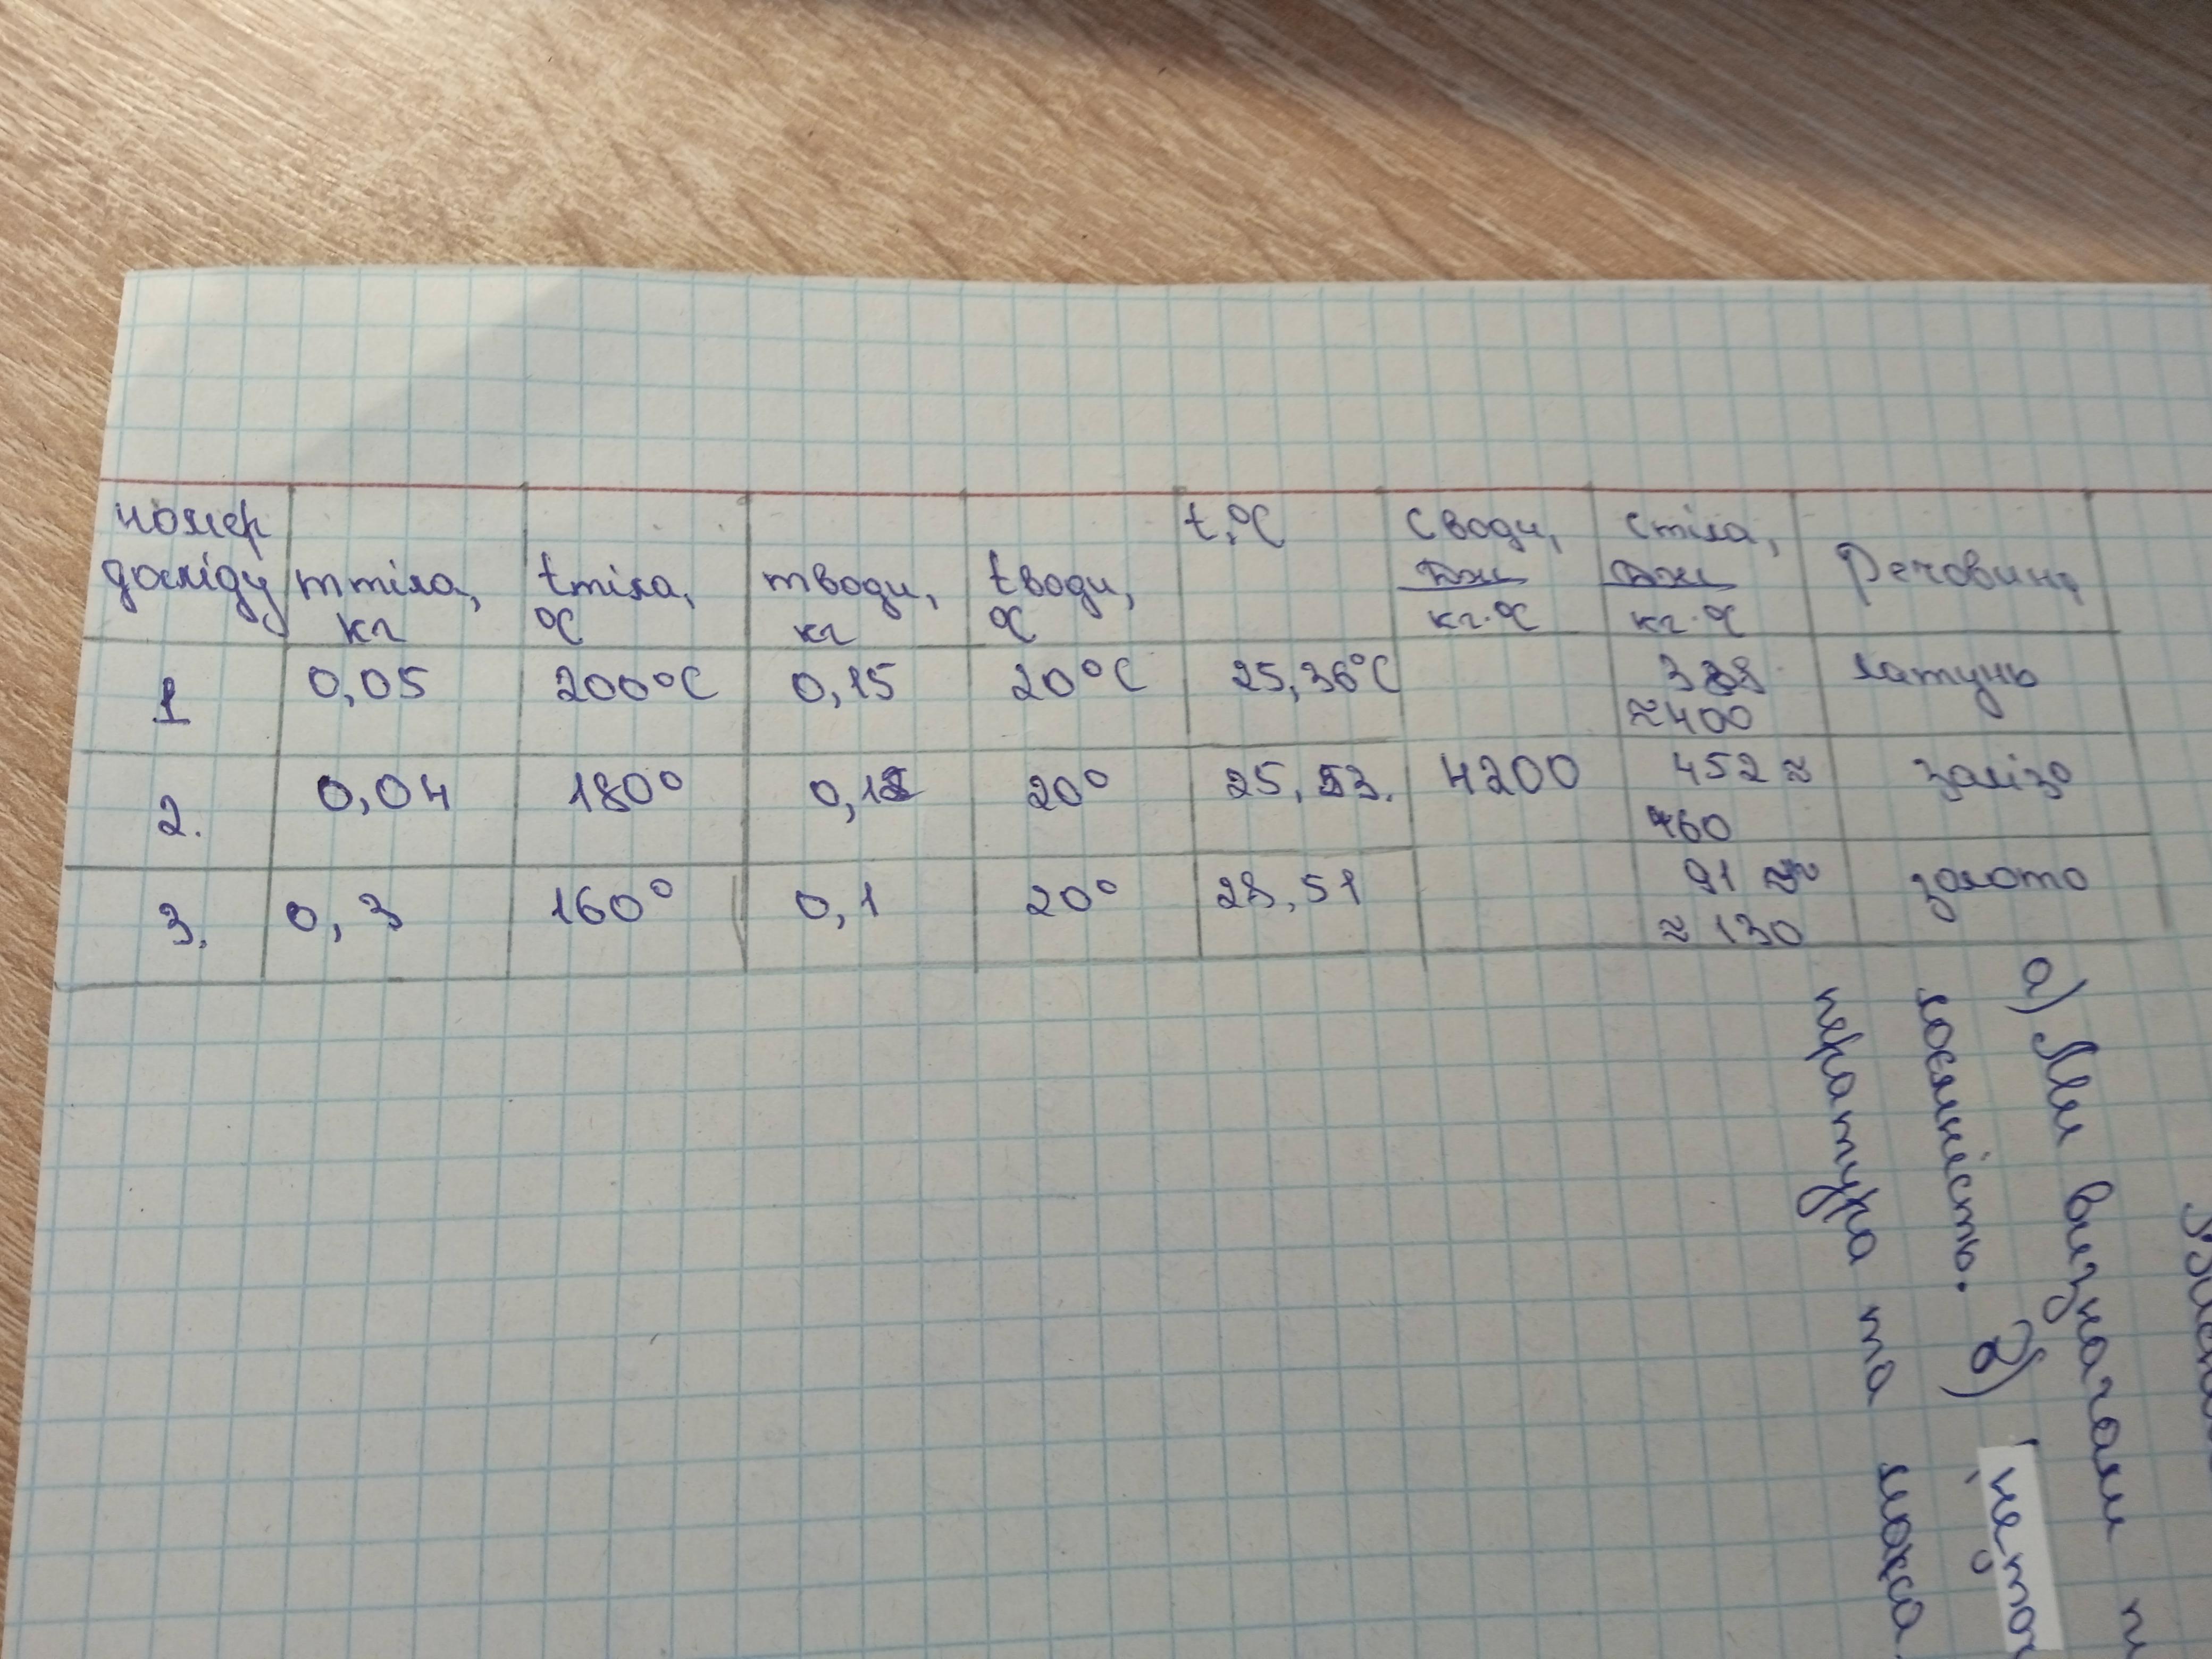 номер досліду	m тіла, кг	t тіла, °C	m води, кг	t води, °C	t, °C	c води, Дж/кг·°C	c тіла, Дж/кг·°C	Речовина
1	0,05	200°C	0,15	20°C	25,36°C		≈400	латунь
2.	0,04	180°		20°	25,53.	4200	452 ≈ 460	залізо
3.	0,3	160°	0,1	20°	28,51		91 ≈ ≈ 130	золото
а) Ми визначали п
лоємність. 2)
пература та маса